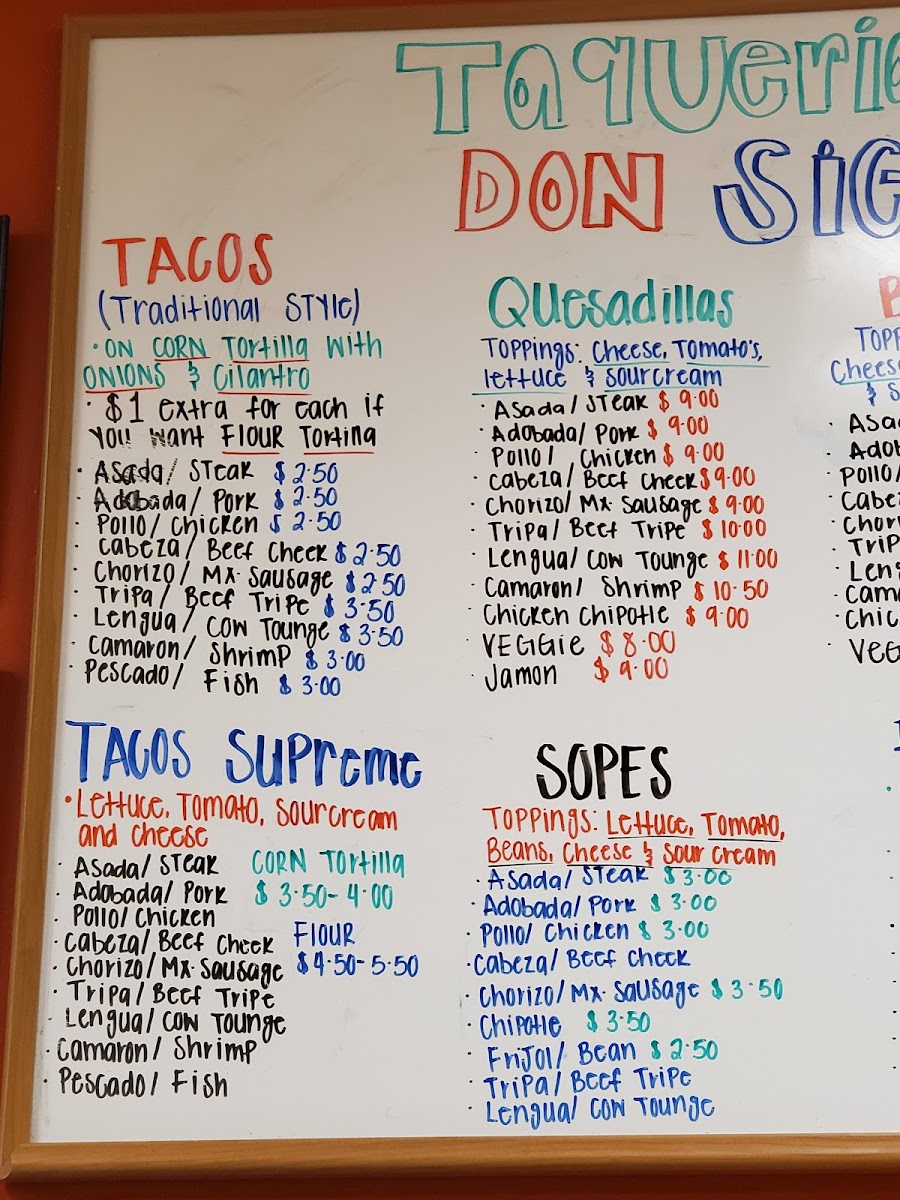 Taqueria
DON SiG
TACOS
(Traditional STYle)
· ON CORN Tortilla with
ONIONS & Cilantro
· $1 extra for each if
you want FlOUR Tortilla
· Asada/ STeak $2.50
· Adobada/ Pork $2.50
· Pollo/ Chicken $2.50
· Cabeza/ Beef Cheek $2.50
· Chorizo/ Mx. Sausage $2.50
· Tripa/ Beef Tripe $3.50
· Lengua/ Cow Tounge $3.50
· Camaron/ Shrimp $3.00
· Pescado/ Fish $3.00
TACOS Supreme
· Lettuce, Tomato, sour cream
and cheese
· Asada/ STeak CORN Tortilla
· Adobada/ Pork $3.50-4.00
· Pollo/ Chicken
· Cabeza/ Beef Cheek FlOUR
· Chorizo/ Mx. Sausage $4.50-5.50
· Tripa/ Beef Tripe
· Lengua/ Cow Tounge
· Camaron/ Shrimp
· Pescado/ Fish
Quesadillas
Toppings: Cheese, Tomato's,
lettuce & sour cream
· Asada/ STeak $9.00
· Adobada/ Pork $9.00
· Pollo/ Chicken $9.00
· Cabeza/ Beef Cheek $9.00
· Chorizo/ Mx. Sausage $9.00
· Tripa/ Beef Tripe $10.00
· Lengua/ Cow Tounge $11.00
· Camaron/ Shrimp $10.50
· Chicken Chipotle $9.00
· VEGGie $8.00
· Jamon $9.00
SOPES
Toppings: Lettuce, Tomato,
Beans, Cheese & sour cream
· Asada/ Steak $3.00
· Adobada/ Pork $3.00
· Pollo/ Chicken $3.00
· Cabeza/ Beef Cheek
· Chorizo/ Mx. Sausage $3.50
· Chipotle $3.50
· Frijol/ Bean $2.50
· Tripa/ Beef Tripe
· Lengua/ Cow Tounge
TOPP
Cheese
& S
· Asa
· Adob
· Pollo/
· Cabez
· Chor
· Trip
· Leng
· Cama
· Chic
· VEG